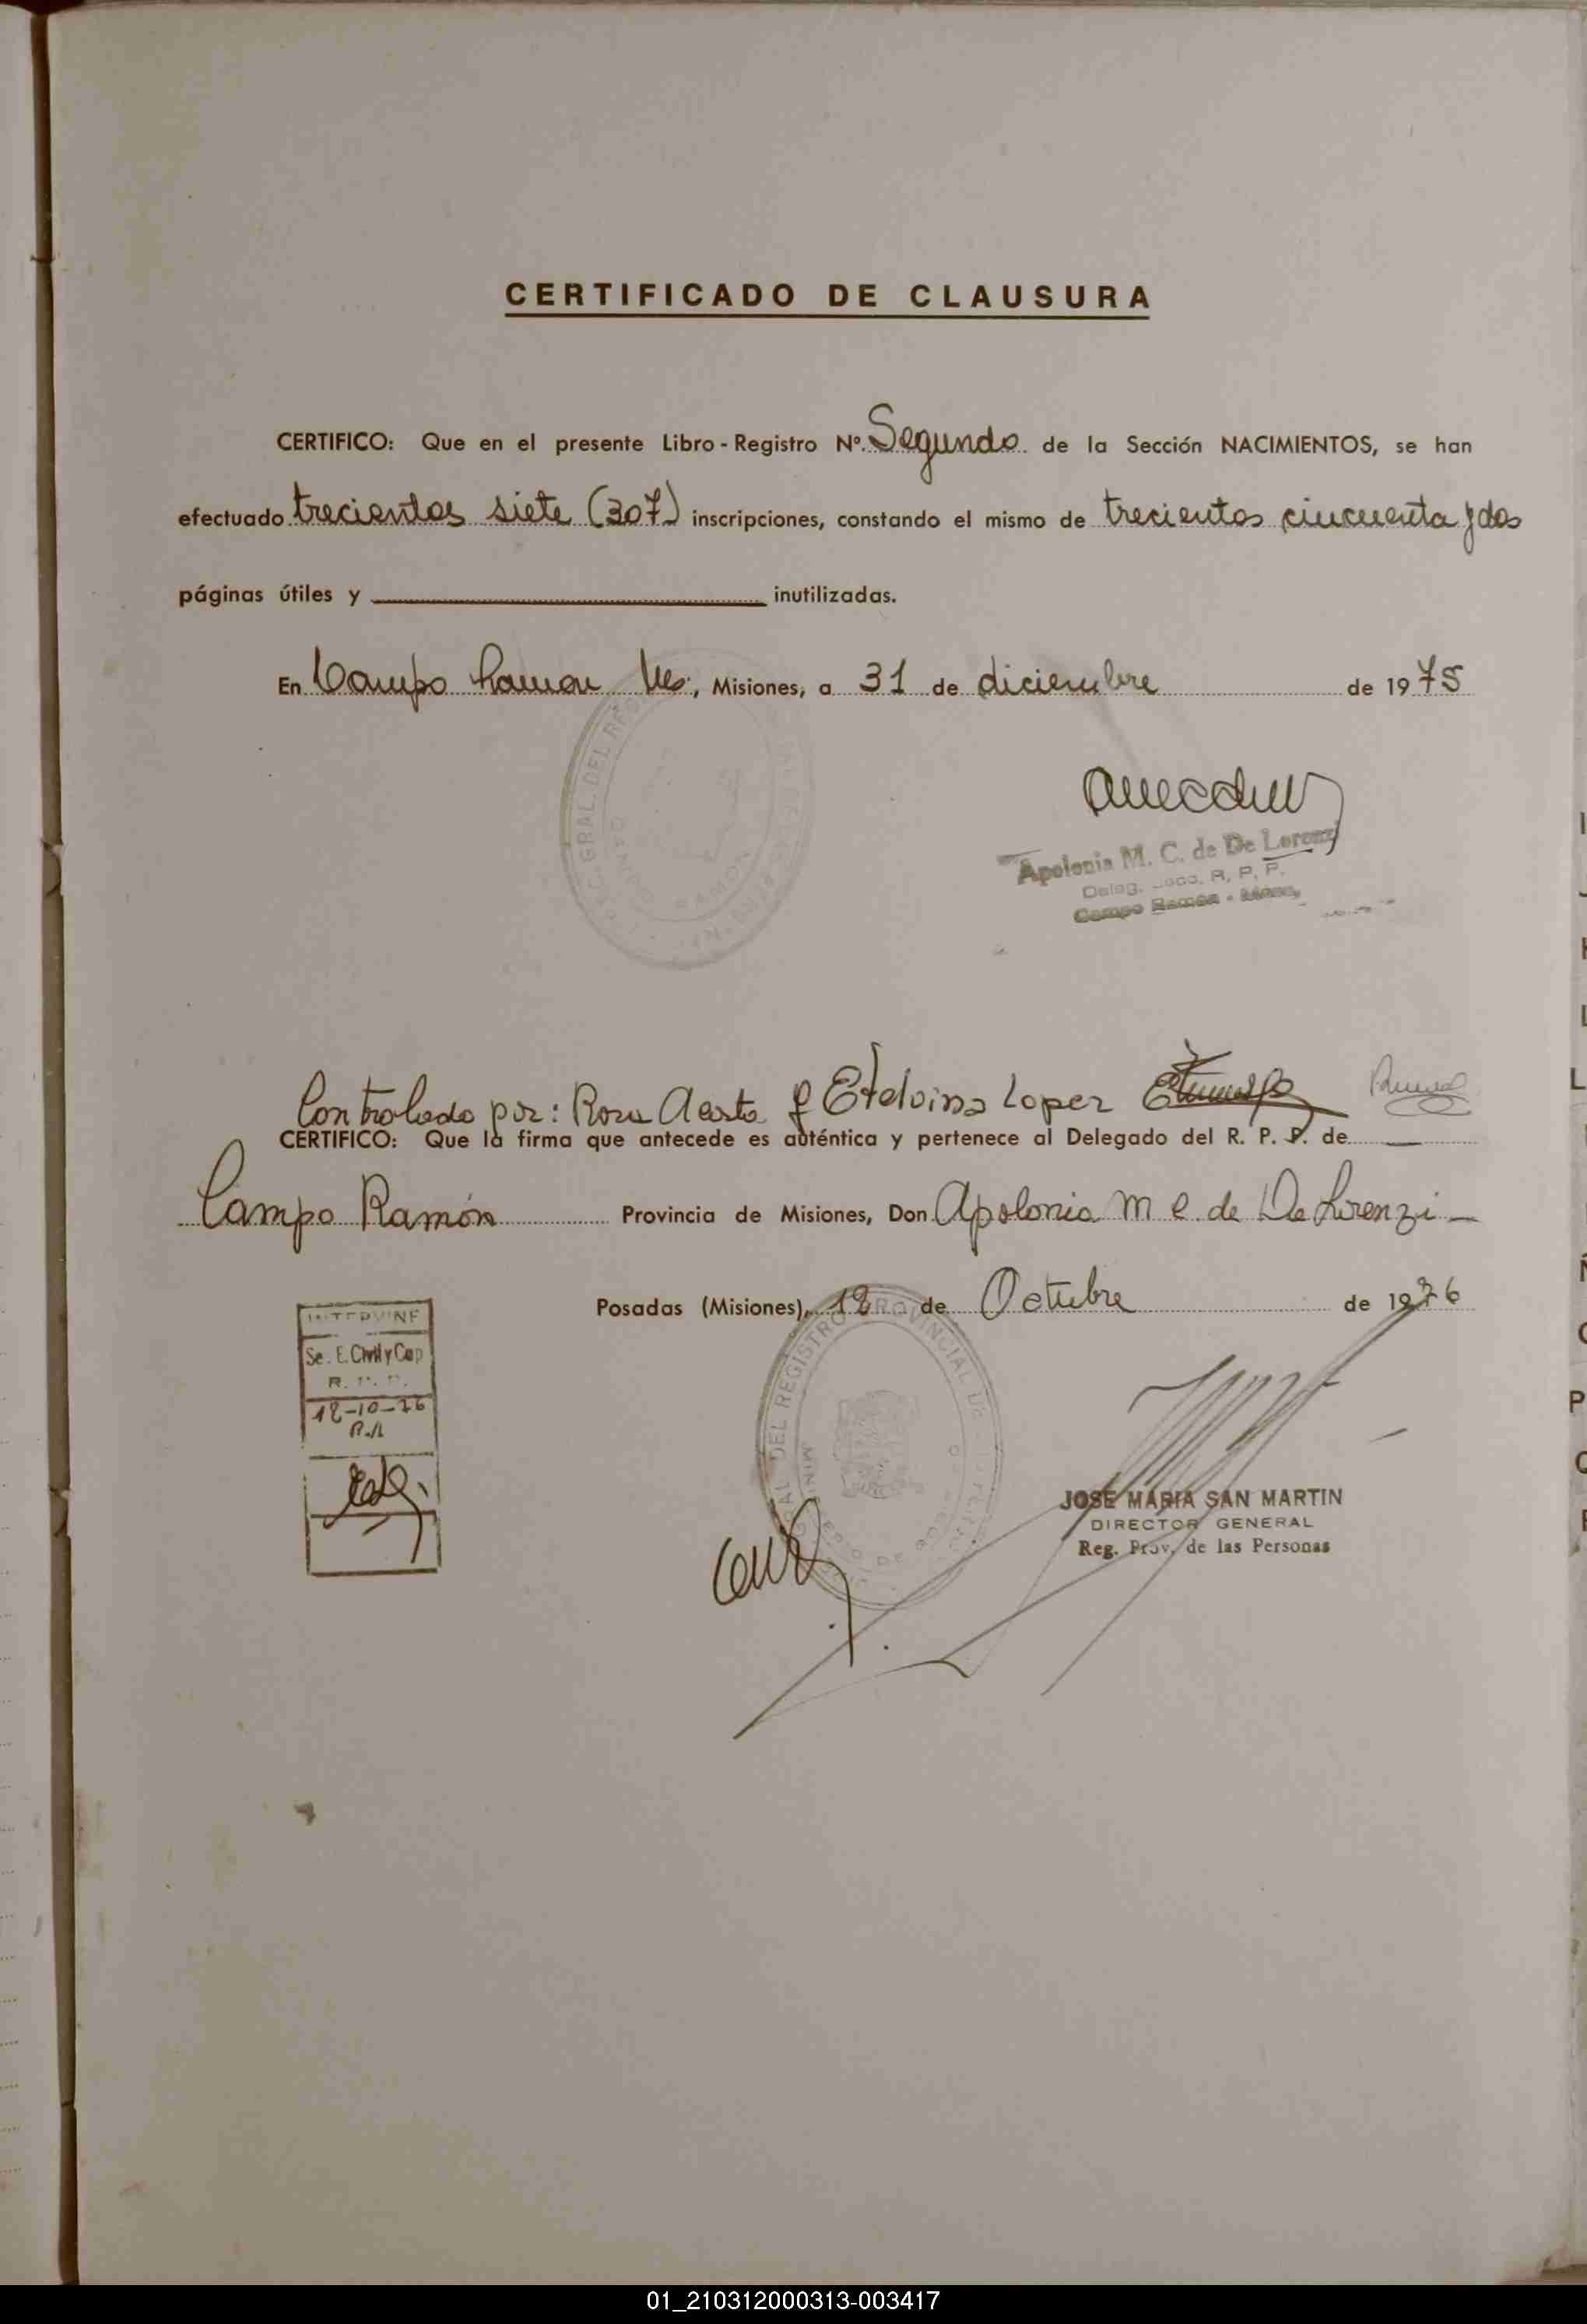 CERTIFICADO DE CLAUSURA
CERTIFICO: Que en el presente Libro - Registro Nº. Segundo de la Sección NACIMIENTOS, se han
efectuado trecientos siete (307) inscripciones, constando el mismo de trecientos cincuenta y dos
páginas útiles y inutilizadas.
En Campo Ramon Mes., Misiones, a 31 de diciembre de 1975
Apolonia M. C. de De Lorenzi
Deleg. R. P. P.
Campo Ramon - Mnes.
Controlado por: Rosa Acosta y Etelvina Lopez
CERTIFICO: Que la firma que antecede es auténtica y pertenece al Delegado del R. P. P. de
Campo Ramón Provincia de Misiones, Don Apolonia M C. de De Lorenzi
Posadas (Misiones), 12 de Octubre de 1976
INTERVINE
Se. E. Civil y Cap
R. P. P.
12-10-76
JOSE MARIA SAN MARTIN
DIRECTOR GENERAL
Reg. Prov. de las Personas
01_210312000313-003417